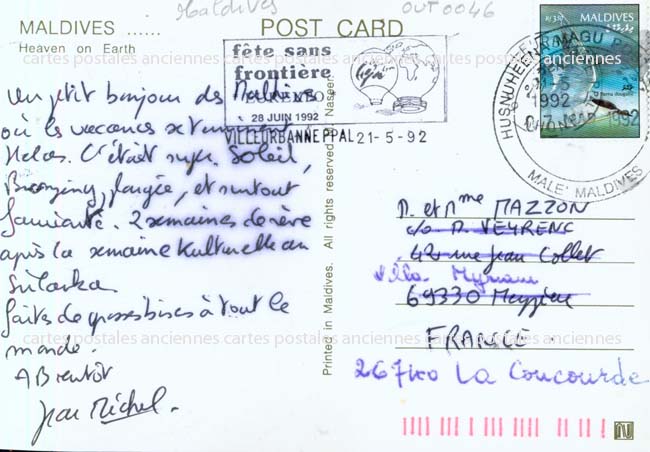 Maldives
OUT 0046
MALDIVES ......
POST CARD
Heaven on Earth
cartes postales anciennes cartes postales anciennes cartes postales anciennes
fête sans
frontière
28 JUIN 1992
VILLEURBANNE PPAL 21-5-92
MALDIVES
HUSNUHEENU MAGU
1992
MALE' MALDIVES
Un p'tit bonjour des Maldives
où les vacances se terminent
Helas. C'était super. Soleil,
Bronzing, plongée, et surtout
farniente. 2 semaines de rêve
après la semaine Kulturelle au
Sri Lanka.
faites de grosses bises à tout le
monde.
A Bientôt
Jean Michel.
Printed in Maldives. All rights reserved by Naseer.
M. et Mme MAZZON
c/o M. VEYRENC
42 rue Jean Collet
Villa Myriam
69330 Meyzieu
FRANCE
26740 La Coucourde
cartes postales anciennes cartes postales anciennes cartes postales anciennes
cartes postales anciennes cartes postales anciennes cartes postales anciennes